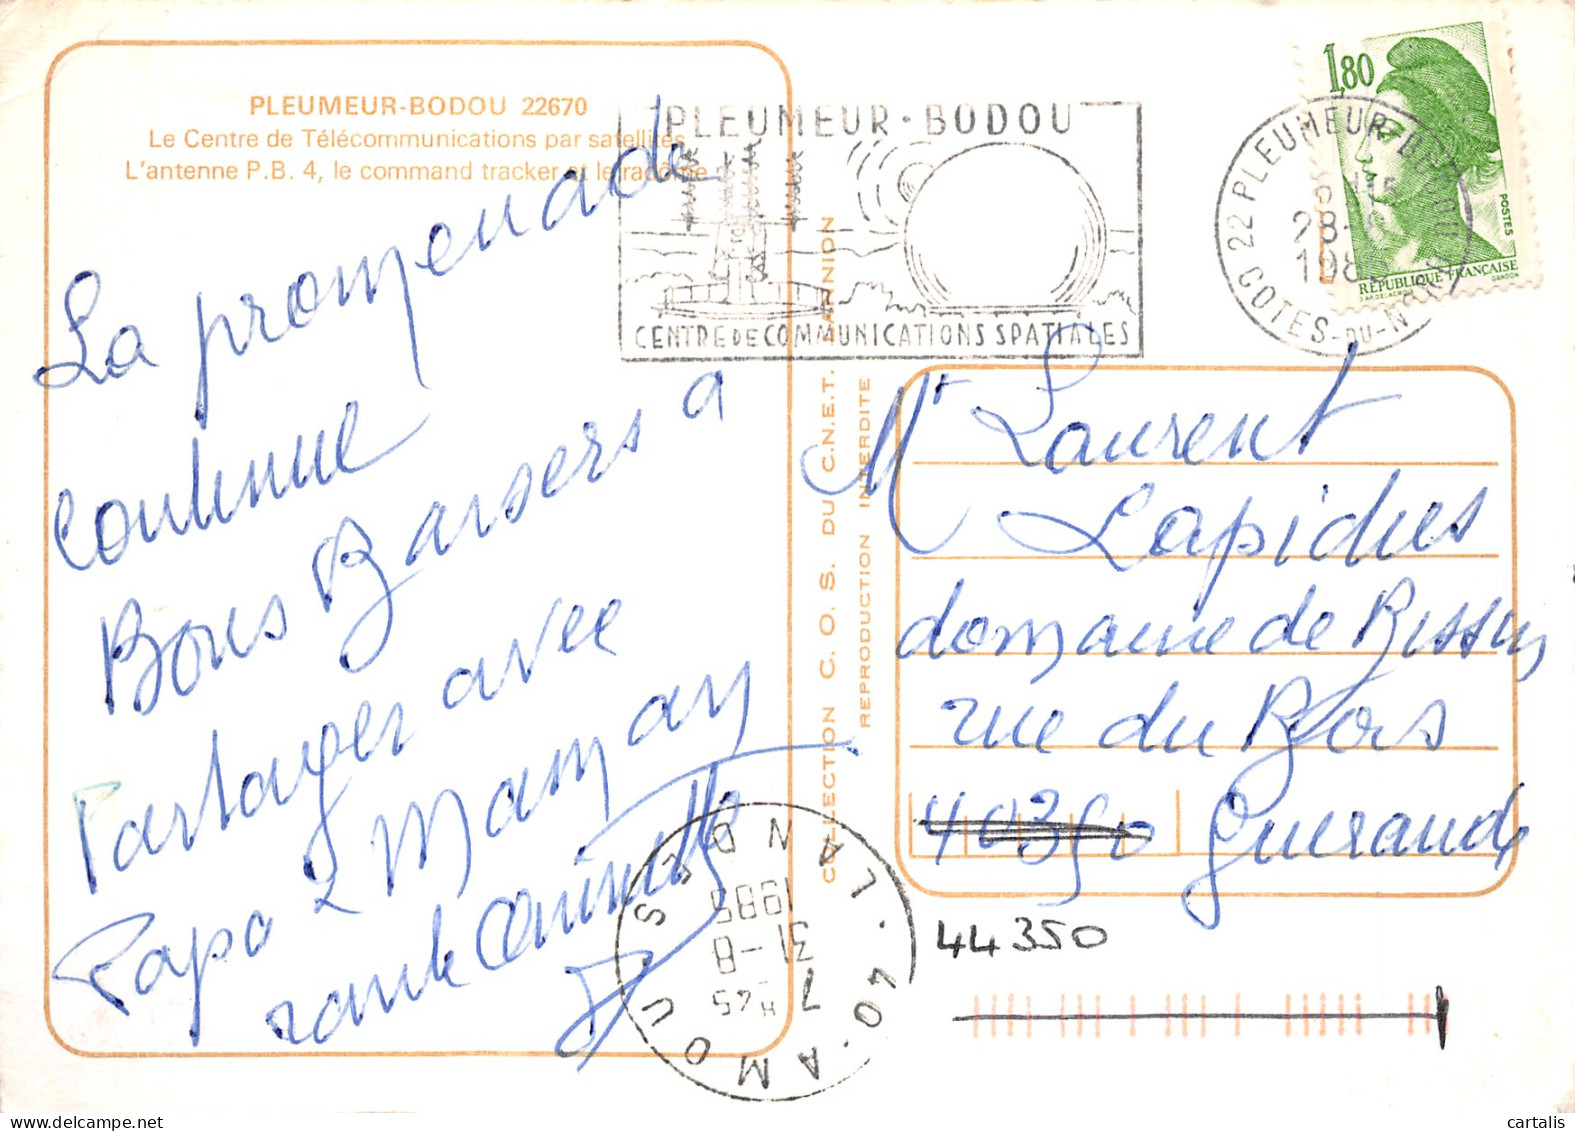 PLEUMEUR-BODOU 22670
Le Centre de Télécommunications par satellites
L'antenne P.B. 4, le command tracker et le radôme
La promenade
continue
Bons Baisers a
Partager avec
Papa & Maman
COLLECTION C. O. S. DU C.N.E.T. LANNION
REPRODUCTION INTERDITE
PLEUMEUR - BODOU
CENTRE DE COMMUNICATIONS SPATIALES
22 PLEUMEUR-BODOU
28-
COTES-DU-NORD
1,80
POSTES
RÉPUBLIQUE FRANÇAISE
D'AP. DELACROIX
GANDON
Mr Laurent
Lapidus
domaine de
rue du Bois
40350 Guerande
44350
40-AMOU LANDES
7 H 45
31-8
1985
cartalis